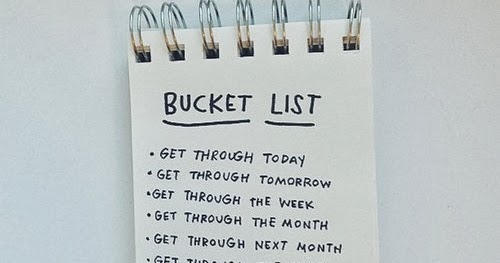 BUCKET LIST
• GET THROUGH TODAY
• GET THROUGH TOMORROW
• GET THROUGH THE WEEK
• GET THROUGH THE MONTH
• GET THROUGH NEXT MONTH
• GET